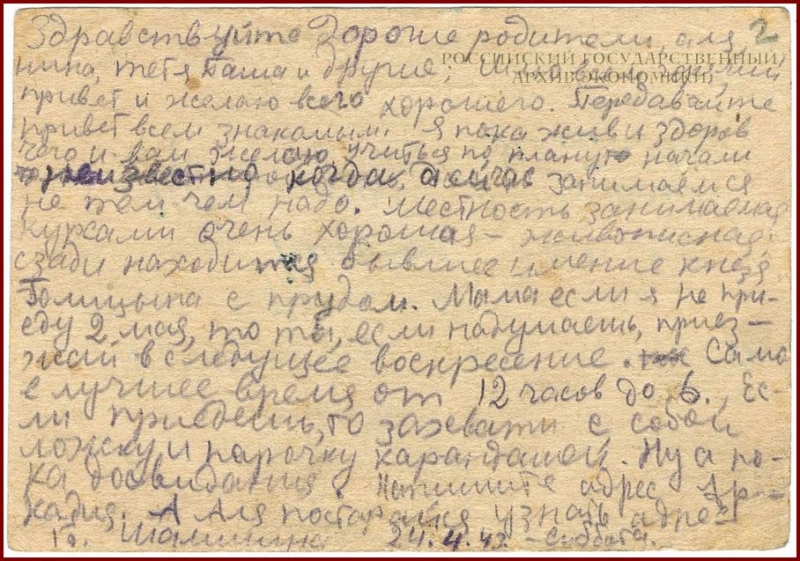 Здравствуйте Дорогие родители, аля 2
РОССИЙСКИЙ ГОСУДАРСТВЕННЫЙ
АРХИВ ЭКОНОМИКИ
нина, тетя Паша и другие; Шлю
привет и желаю всего хорошего. Передавайте
привет всем знакомым. Я пока жив и здоров
чего и вам желаю. Учиться по плану начали
неизвестно когда, а сейчас занимаемся
не тем чем надо. Местность занимаемая
курсами очень хорошая – живописная
сзади находится бывшее имение князя
Голицына с прудом. Мама если я не при-
еду 2 мая, то ты, если надумаешь, приез-
жай в следущее воскресение. Само
е лучшее время от 12 часов до 6. Ес-
ли приедешь, то захвати с собой
ложку и парочку карандашей. Ну а по-
ка досвидания. Напишите адрес Ар-
кадия. А Аля постарайся узнать адрес
24.4.43. – Суббота.